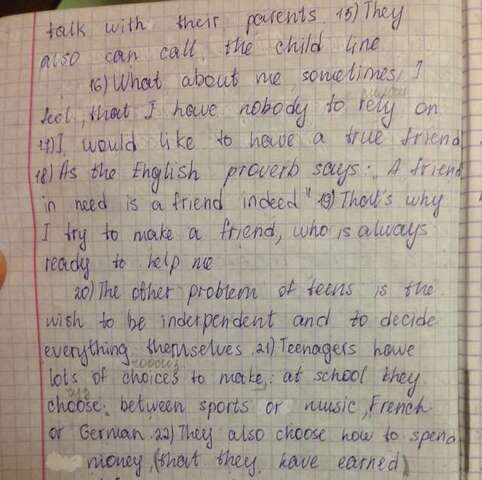 talk with their parents. 15) They
also can call the child line
16) What about me, sometimes I
feel, that I have nobody to rely on
17) I would like to have a true friend
18) As the English proverb says: A friend
in need is a friend indeed" 19) That's why
I try to make a friend, who is always
ready to help me
20) The other problem of teens is the
wish to be inderpendent and to decide
everything themselves. 21) Teenagers have
lots of choices to make: at school they
choose between sports or music, French
or German. 22) They also choose how to spend
money, (that they have earned)